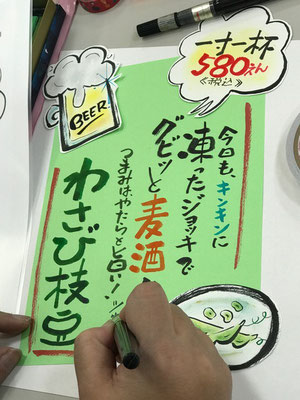 一寸一杯
580えん
《税込》
BEER
今日も、キンキンに
凍ったジョッキで
グビッと麦酒
つまみはやたらと旨い!
わさび枝豆